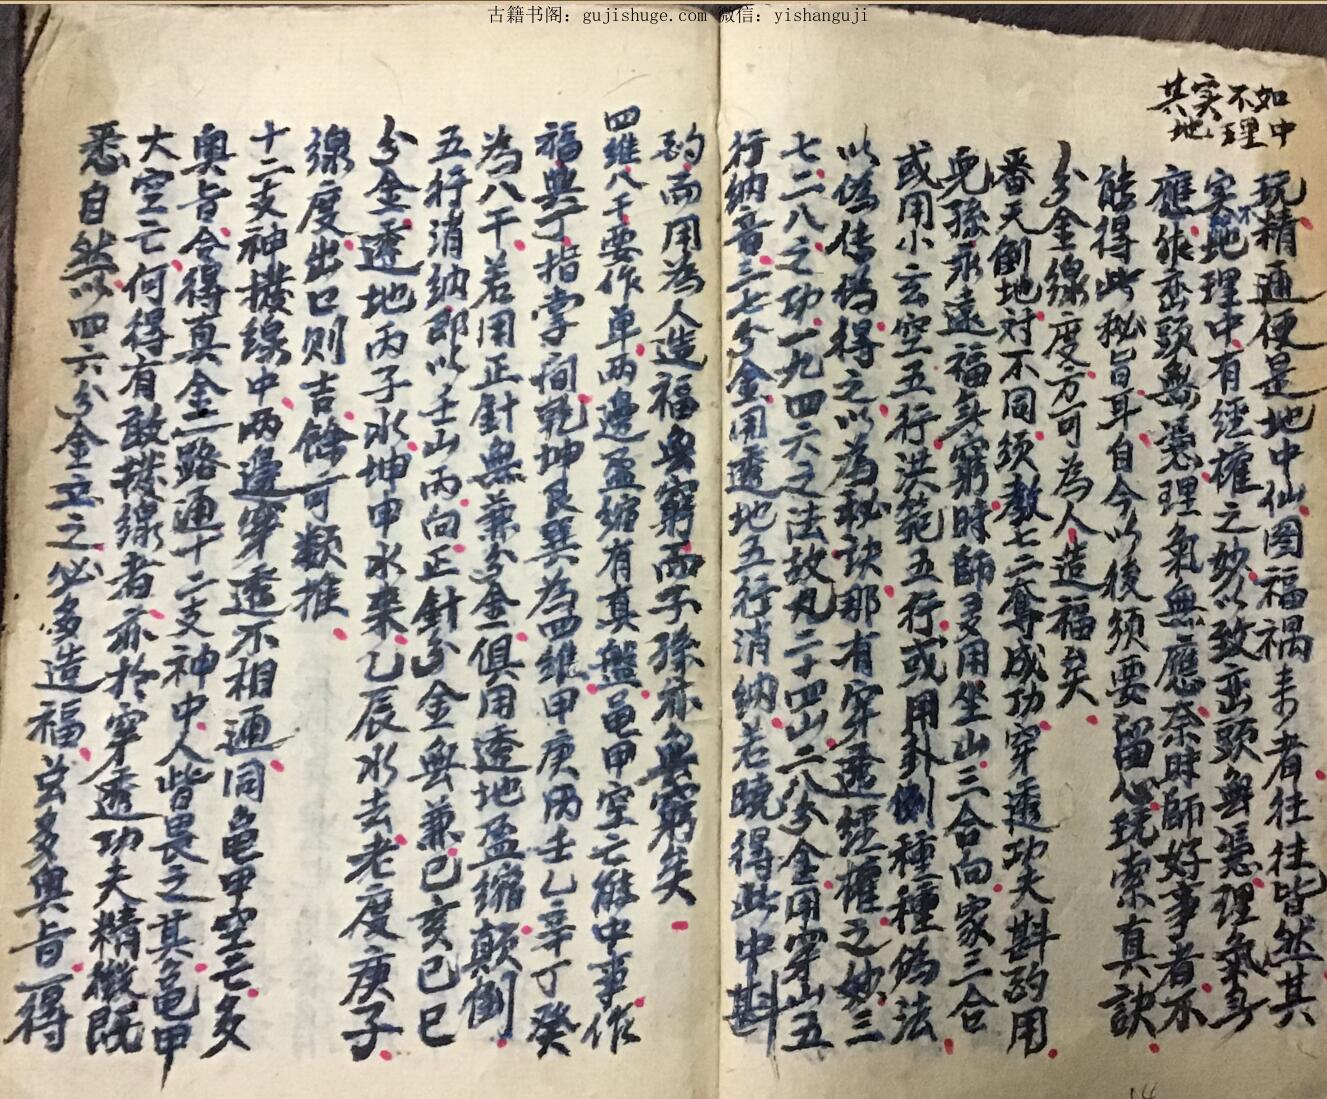 古籍书阁：gujishuge.com 微信：yishanguji
如中
不理
实地
其
玩精通便是地中仙图福祸未者往往皆然其
实不地理中有經權之妙以致峦頭無憑理氣無
應作峦頭無憑理氣無應奈時師好事者不
能得此秘旨耳自今以後須要留心玩索真訣
分金線度方可為人造福矣
番天倒地对不同须教七二奪成功穿透功夫斟酌用
児孫永遠福無窮時師多用坐山三合向家三合
或用小玄空五行洪範五行或用卦例種種偽法
以偽傳偽得之以為秘訣那有穿透經權之妙三
七二八之功一九四六之法故凡二十四山二八分金用穿山五
行納音三七分金用透地五行消納若曉得此中斟
酌而用為人造福無窮而子孫亦無窮矣
四維八干要作单两邊盈缩有真盤龟甲空亡能中事作
福與丁指掌间乾坤艮巽為四維甲庚丙壬乙辛丁癸
為八干若用正針無兼分金俱用透地盈縮顛倒
五行消納即以壬山丙向正針分金無兼己亥己巳
分金透地丙子水坤申水來乙辰水去老度庚子
線度出巳则吉餘可類推
十二支神撥線中两邊穿透不相通同龟甲空亡多
奥旨令得真金一路通十二支神中人皆畏之其龟甲
大空亡何得有敢撥線者亦於穿透功夫精微既
悉自然以四六分金立之必多造福並多奥旨得